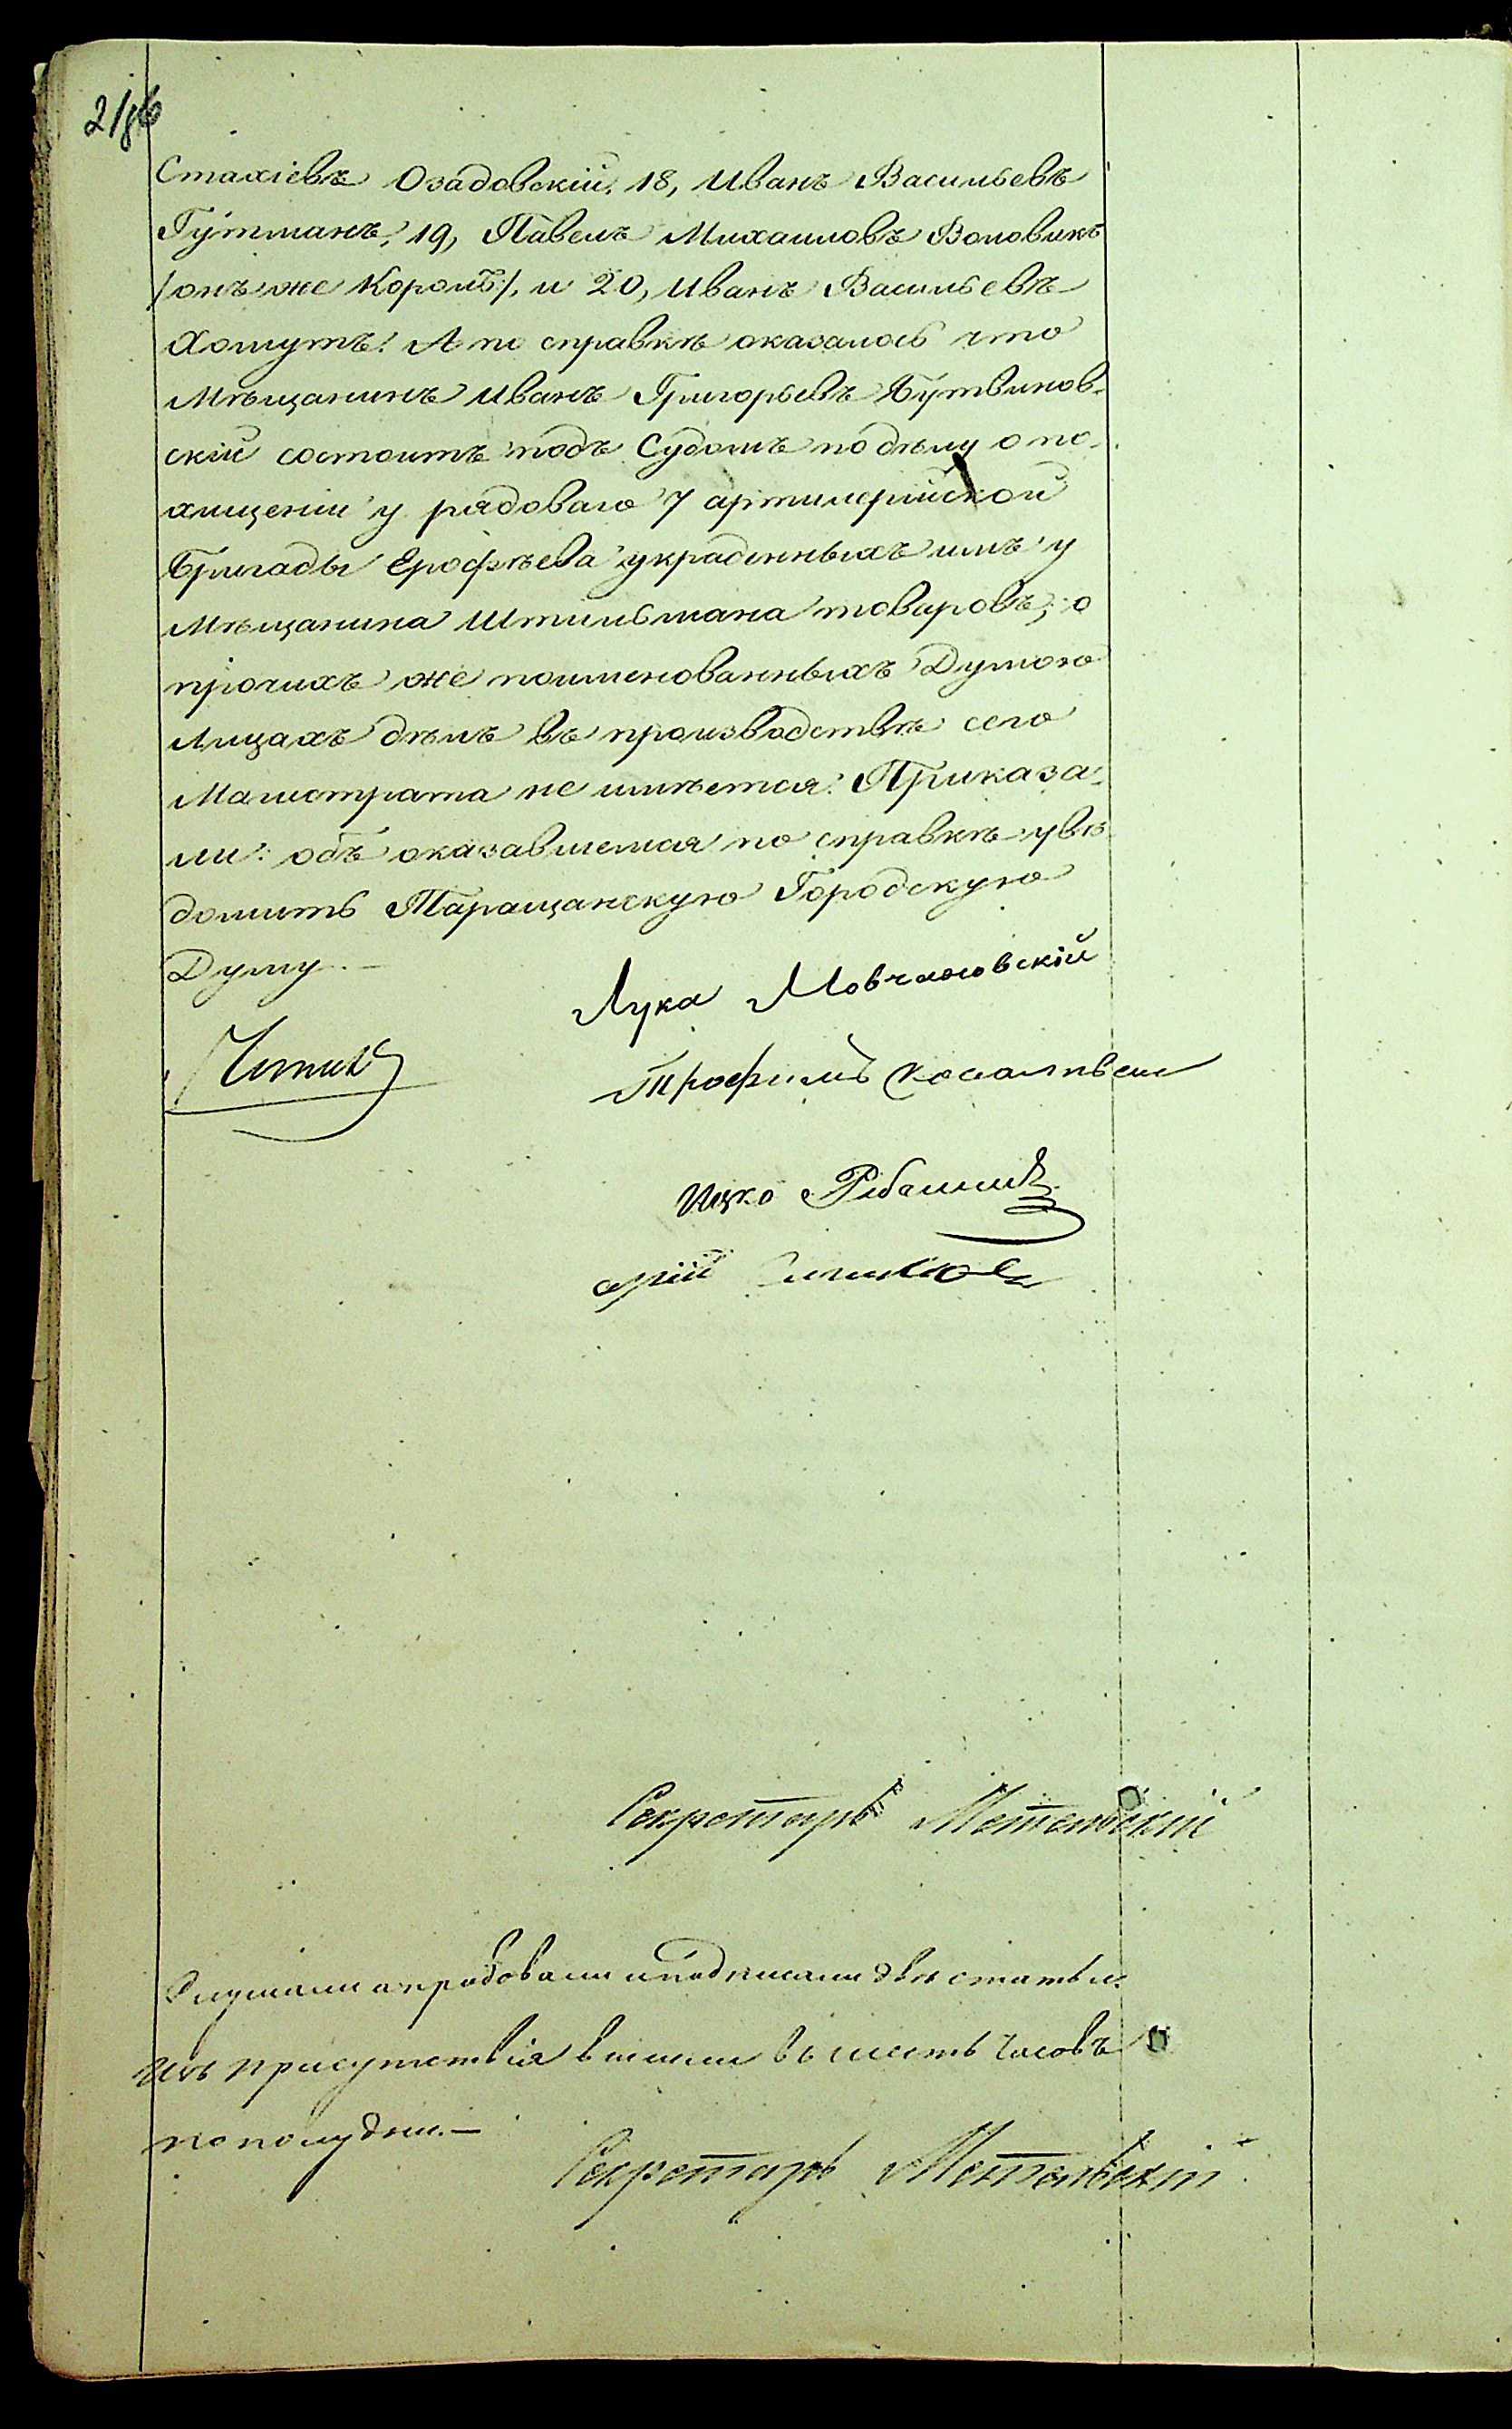 Стахіевъ Озадовскій, 18, Иванъ Васильевъ
Гутманъ, 19, Павелъ Михаиловъ Воловикъ
/онъ же Король/, и 20, Иванъ Васильевъ
Хомутъ. А по справкѣ оказалось что
Мѣщанинъ Иванъ Григорьевъ Бутвинов-
скій состоитъ подъ Судомъ по дѣлу о по-
хищеніи у рядоваго 7 артилерійской
Бригады Ерофѣева украденныхъ имъ у
Мѣщанина Штильмана товаровъ; о
прочихъ же поименованныхъ Думою
Лицахъ дѣлъ въ производствѣ сего
Магистрата не имѣется. Приказа-
ли: объ оказавшемся по справкѣ увѣ-
домить Таращанскую Городскую
Думу. —
Лука Мовчановскій
Трофимъ
Ицко
Секретарь Метельскій
Слушали апробовали и подписали двѣ статьи.
Изъ присутствія вышли въ шесть часовъ
по полудни. —
Секретарь Метельскій